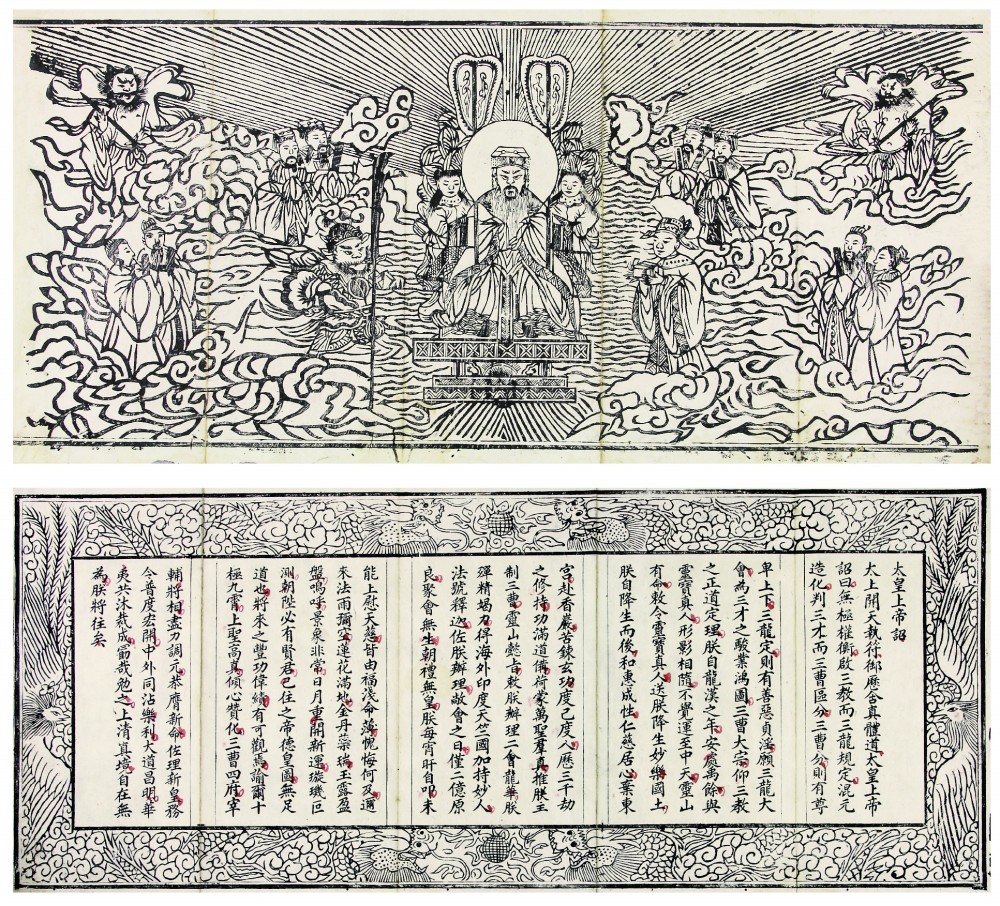 太皇上帝詔
太上開天執符御歷含真體道太皇上帝
詔曰無極權衡啟三教而三龍規定混元
造化判二才而三曹區分三曹分則有尊
卑上下三龍定則有善惡貞淫願三龍大
會為三才之駿業鴻圖三曹大宗仰三教
之正道定理朕自龍漢之年安處禹餘與
靈寶真人形影相隨不覺運至中天靈山
有命敕令靈寶真人送朕降生妙樂國土
朕自降生而後和惠成性仁慈居心棄東
宮赴香嚴苦鍊玄功度己度人歷三千劫
之修持功滿道備荷蒙萬聖羣真推朕主
制三曹靈山懿旨敕朕辦理二會龍華朕
殫精竭力得海外印度天竺國加持妙人
法號釋迦佐朕辦理敝會之日僅二億原
良豕會無生朝禮無皇朕每宵旰自叩未
能上慰天慈皆由福淺命薄愧悔何及邇
來法雨瀰空蓮花滿地金丹藥瑞玉露盈
盤嗚呼景象非常日月重開新運璇璣叵
測朝陛必有賢君已往之帝德皇圖無足
道也將來之豐功偉績有可觀焉諭爾十
極九霄上聖高真傾心贊化三曹四府宰
輔將相盡力調元恭膺新命佐理新皇務
令普度宏開中外同沾樂利大道昌明華
夷共沐哉成勗哉勉之上清真境自在無
為朕將往矣